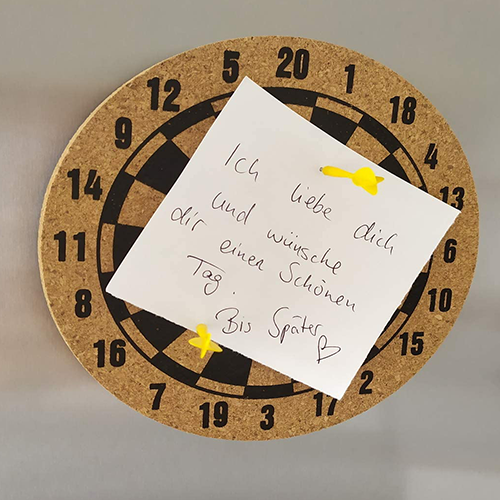 20
1
18
4
13
6
10
15
2
17
3
19
7
16
8
11
14
9
12
5
Ich liebe dich
und wünsche
dir einen Schönen
Tag.
Bis Später